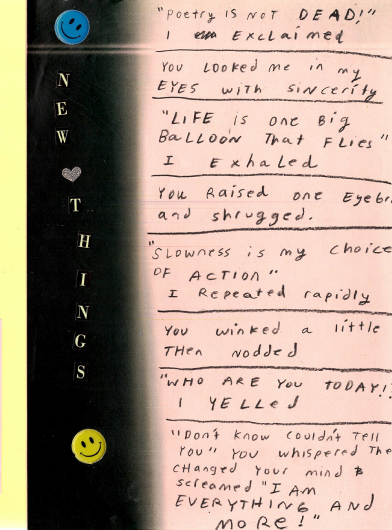 NEW THINGS
"Poetry IS NOT DEAD!"
I Exclaimed
You Looked me in my
EYES with sincerity
"LIFE is one Big
BALLOON That FLies"
I Exhaled
You Raised one Eyebr
and shrugged.
"SLOWNESS is my choice
OF ACTION"
I Repeated rapidly
You winked a little
THen nodded
"WHO ARE You TODAY!?
I YELLed
"Don't know couldn't Tell
You" You whispered The
CHanged Your mind &
screamed "I AM
EVERYTHING AND
MORE!"